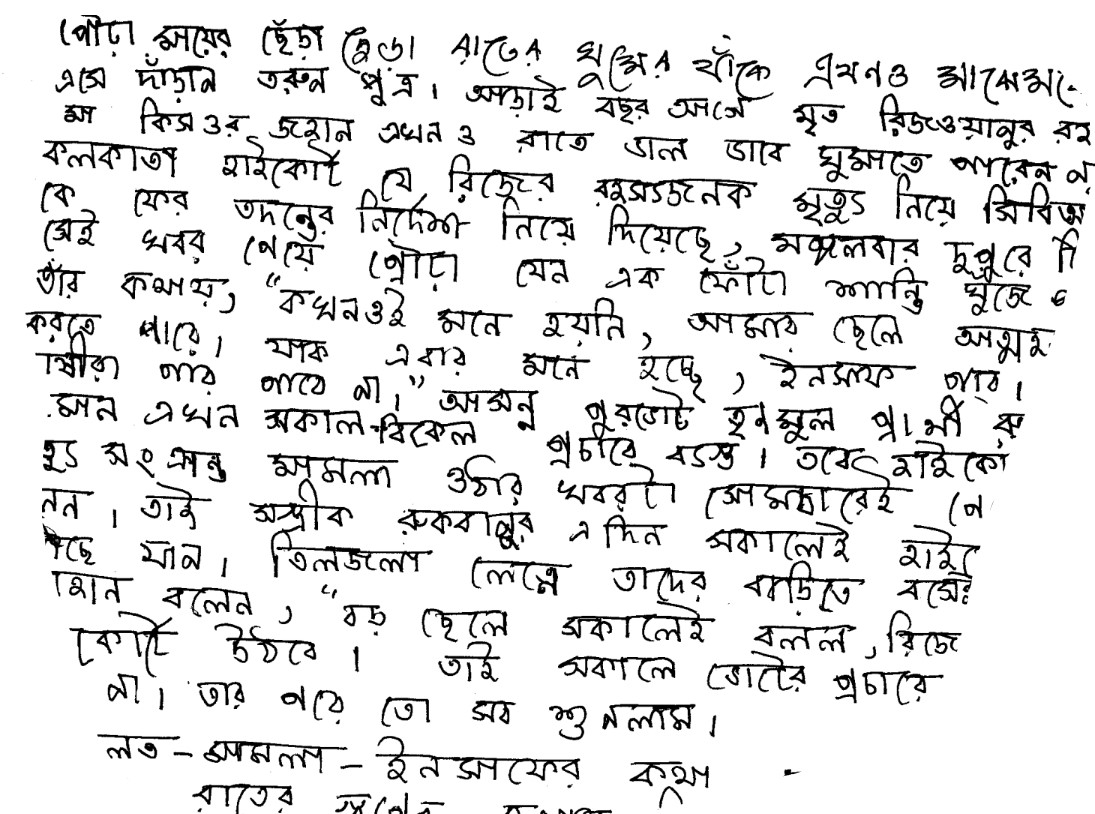 পৌঢ়া মায়ের ছেঁড়া ছেঁড়া রাতের ঘুমের ফাঁকে এখনও মাঝেমধ্যে
এসে দাঁড়ান তরুন পুত্র। আড়াই বছর আগে মৃত রিজওয়ানুর রহ
মা কিসওর জহান এখনও রাতে ভাল ভাবে ঘুমাতে পারেন না
কলকাতা হাইকোর্ট যে রিজের রহস্যজনক মৃত্যু নিয়ে সিবিআ
কে ফের তদন্তের নির্দেশ নিয়ে দিয়েছে, মঙ্গলবার দুপুরে টি
সেই খবর পেয়ে প্রৌঢ়া যেন এক ফোঁটা শান্তি খুঁজে
তাঁর কথায়, "কখনওই মনে হয়নি, আমার ছেলে আত্মহ
করতে পারে। যাক এবার মনে হচ্ছে, ইনসাফ পাব।
ষীরা পার পাবে না।" আসন্ন পুরভোট তৃণমূল প্রার্থী রু
মান এখন সকাল-বিকেল প্রচারে ব্যস্ত। তবে হাইকো
ত্যু সংক্রান্ত মামলা ওঠার খবরটা সোমবারেই পে
নন। তাই সস্ত্রীক রুকবানুর এ দিন সকালেই হাই
ছে যান। তিলজলা লেনে তাদের বাড়িতে বসে
হান বলেন, "বড় ছেলে সকালেই বলল, রিজে
কোর্টে উঠবে। তাই সকালে ভোটের প্রচারে
না। তার পরে তো সব শুনলাম।
লত-মামলা-ইনসাফের কথা
রাতের